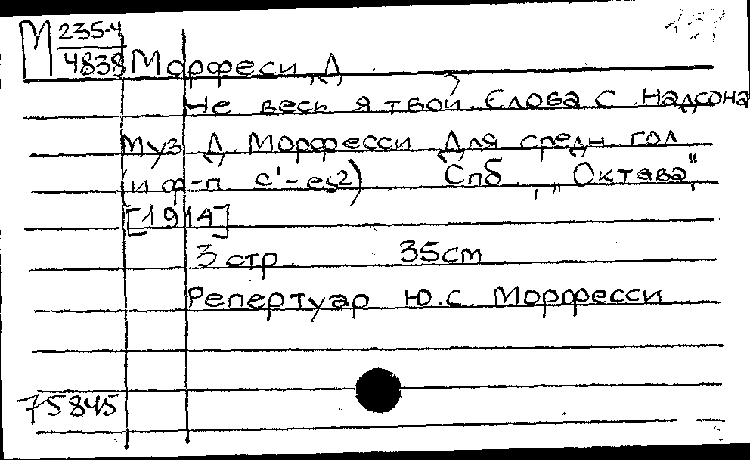 М 235-4
4838
Морфеси, Д
Не весь я твой. Слова С. Надсона
Муз. Д. Морфесси. Для средн. гол.
(и ф-п. c'-es2) Спб., "Октава",
[1914]
3 стр. 35см
Репертуар Ю.С. Морфесси
75845